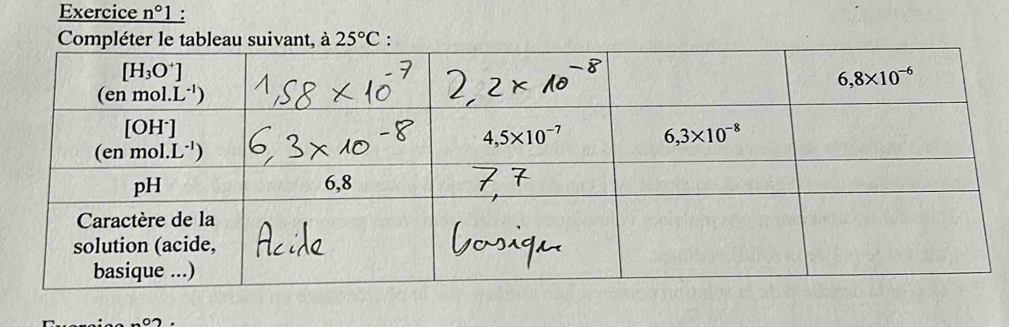 Exercice n°1 :
Compléter le tableau suivant, à 25°C :
[H₃O⁺] (en mol.L⁻¹) 1,58 × 10⁻⁷ 2,2 × 10⁻⁸ 6,8×10⁻⁶
[OH⁻] (en mol.L⁻¹) 6,3 × 10⁻⁸ 4,5×10⁻⁷ 6,3×10⁻⁸
pH 6,8 7,7
Caractère de la solution (acide, basique ...) Acide basique